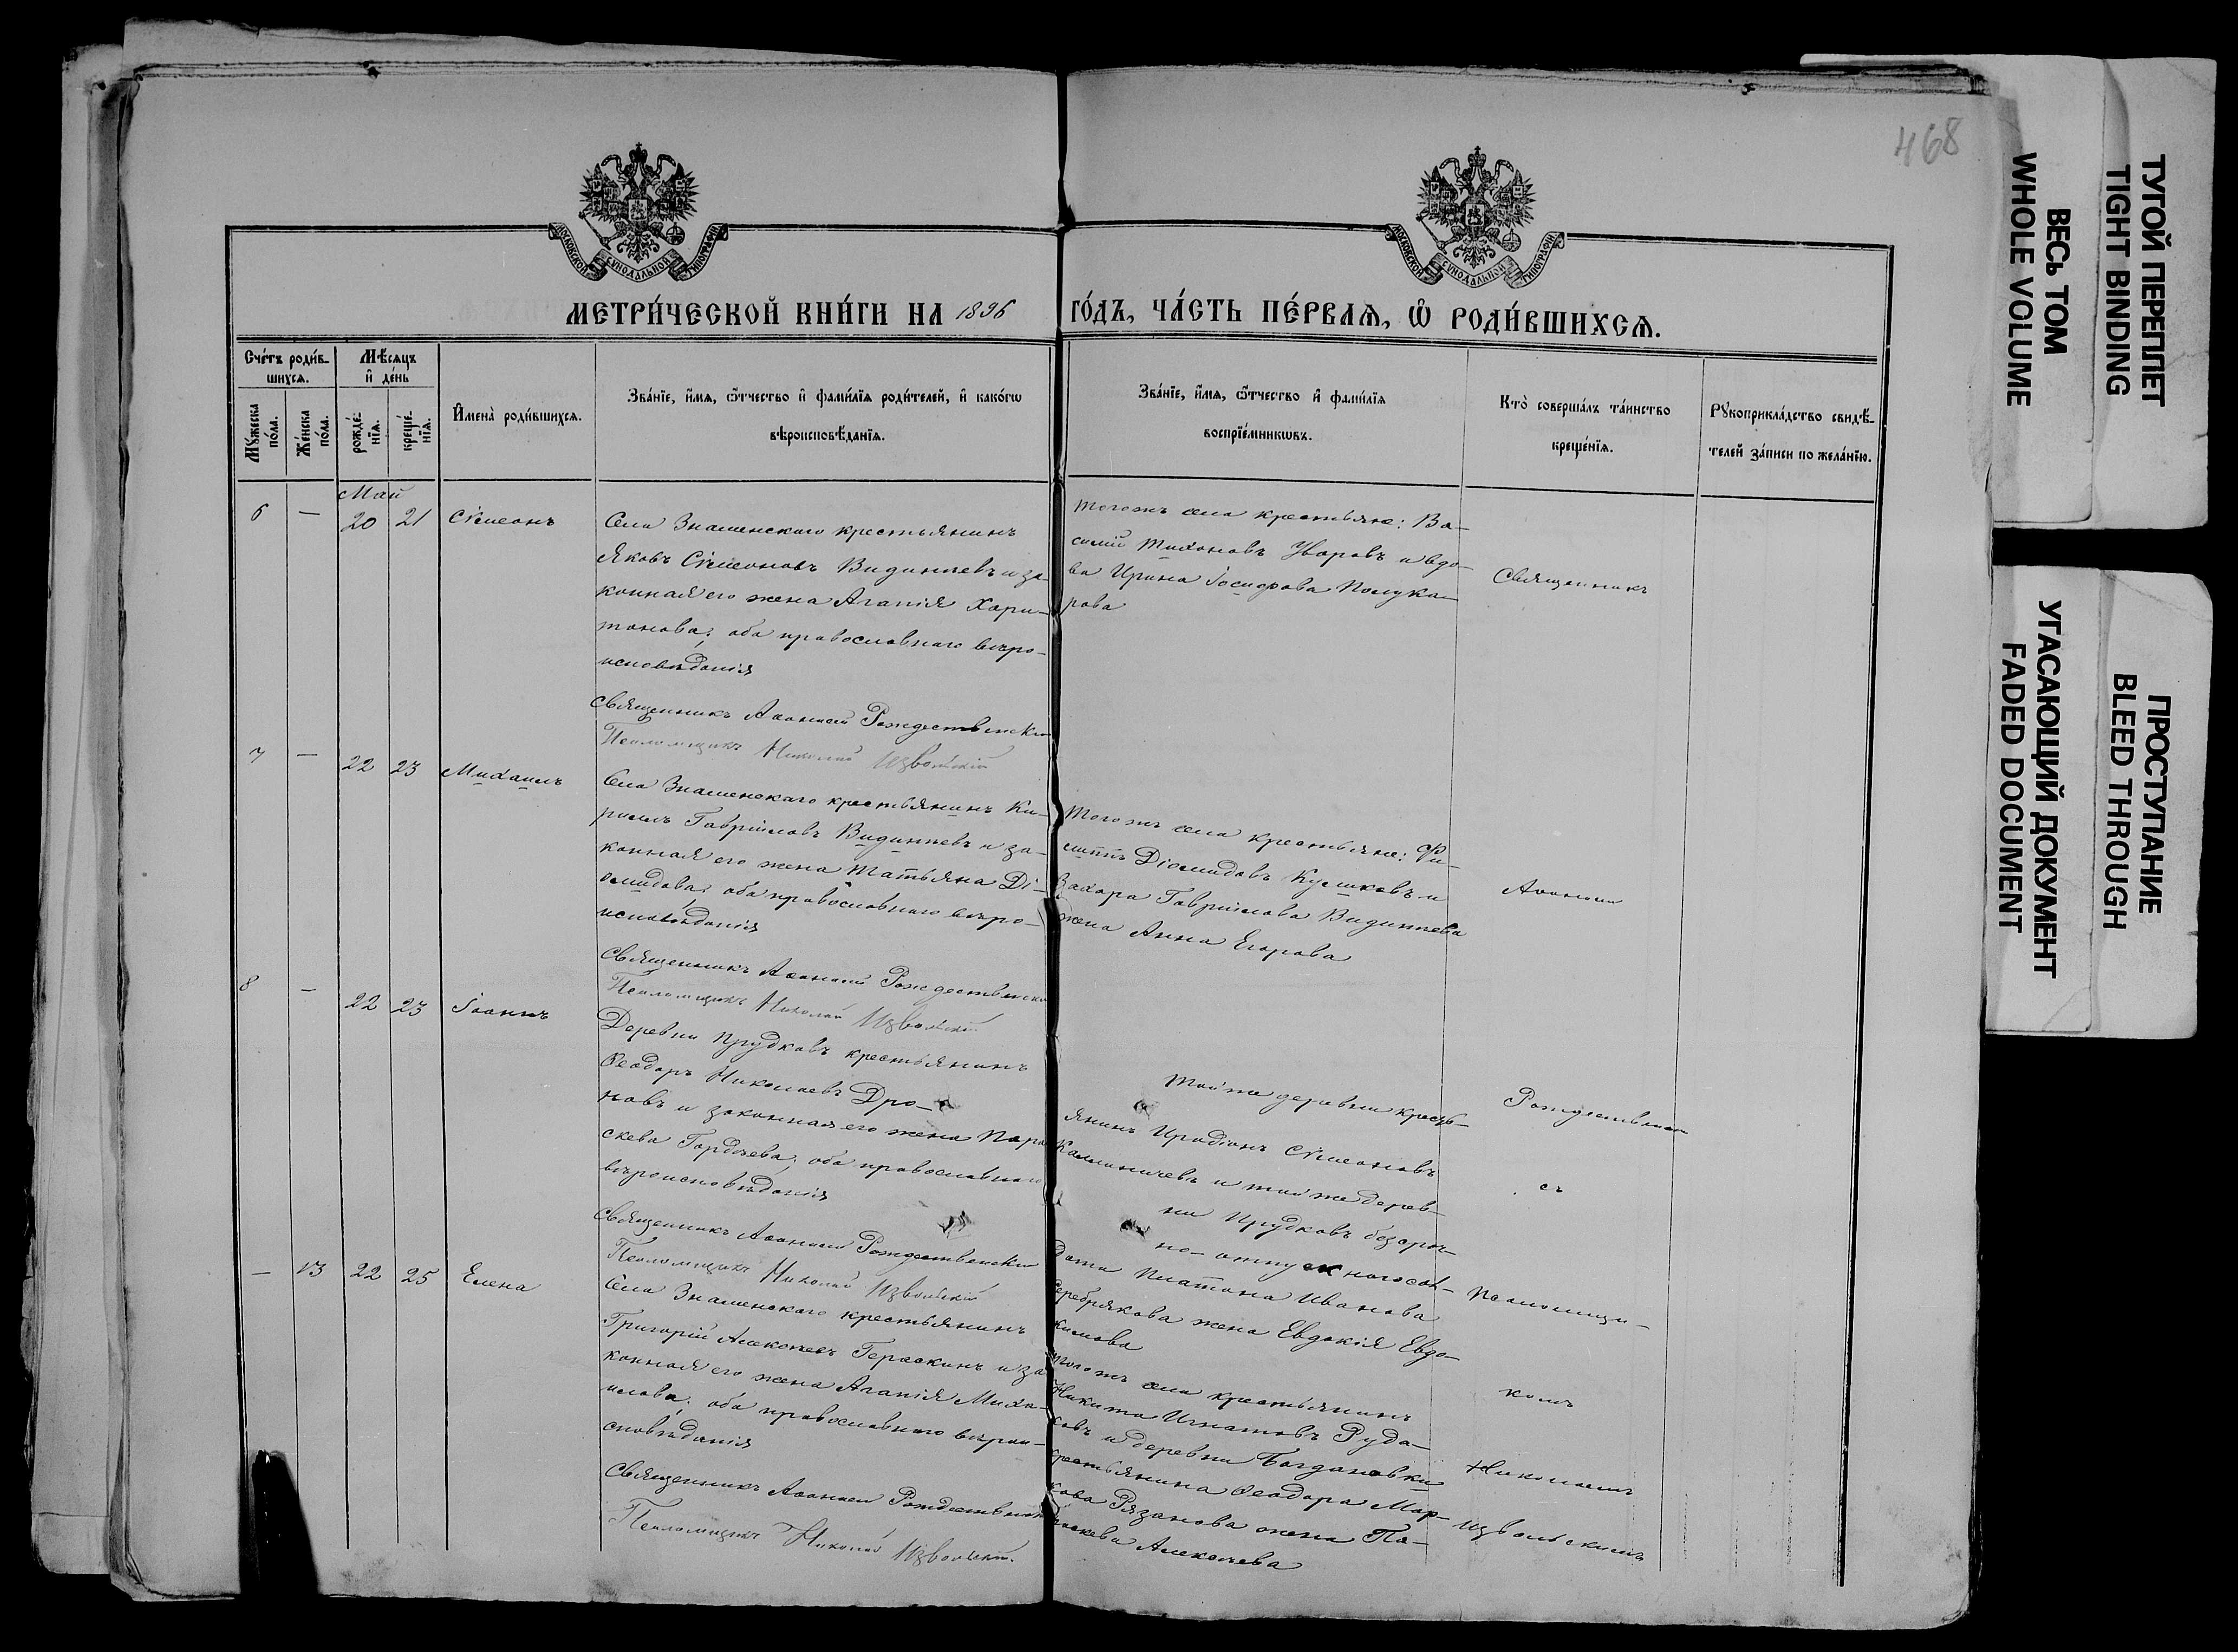 468
МОСКОВСКОЙ СѴНОДАЛЬНОЙ ТИПОГРАФІИ
МОСКОВСКОЙ СѴНОДАЛЬНОЙ ТИПОГРАФІИ
МЕТРИ́ЧЕСКОЙ КНИ́ГИ НА 1896 ГО́ДЪ, ЧА́СТЬ ПЕ́РВАЯ, Ѡ҆ РОДИ́ВШИХСЯ.
Сче́тъ роди́в-
шихся.
Мѣ́сяцъ
и҆ де́нь
Мꙋ́жеска
по́ла.
Же́нска
по́ла.
рожде́-
нїя.
креще́-
нїя.
И҆мена̀ роди́вшихся.
Зва́нїе, и҆́мя, ѻ҆́тчество и҆ фами́лїя роди́телей, и҆ како́гѡ
вѣроисповѣ́данїя.
Зва́нїе, и҆́мя, ѻ҆́тчество и҆ фами́лїя
воспрїе́мникѡвъ.
Кто̀ соверша́лъ та́инство
креще́нїя.
Рꙋкоприкла́дство свидѣ́-
телей за́писи по жела́нїю.
Май
6 — 20 21 Сѵмеонъ
Села Знаменскаго крестьянинъ
Яковъ Сѵмеоновъ Видинѣевъ и за-
конная его жена Агапія Хари-
тонова; оба православнаго вѣро-
исповѣданія
Священникъ Аѳанасій Рождественскій
Псаломщикъ Николай Извольскій
Тогожъ села крестьяне: Ва-
силій Тихоновъ Уваровъ и вдо-
ва Ирина Іосифова Полука-
рова
Священникъ
7 — 22 23 Михаилъ
Села Знаменскаго крестьянинъ Ки-
риллъ Гавріиловъ Видинѣевъ и за-
конная его жена Татьяна Ді-
омидова; оба православнаго вѣро-
исповѣданія
Священникъ Аѳанасій Рождественскій
Псаломщикъ Николай Извольскій
Тогожъ села крестьяне: Фи-
липпъ Діомидовъ и
Захара Гавріилова Видинѣева
жена Анна Егорова
Аѳанасій
8 — 22 23 Іоаннъ
Деревни Прудковъ крестьянинъ
Ѳеодоръ Николаевъ Дро-
новъ и законная его жена Пара-
скева Гордѣева; оба православнаго
вѣроисповѣданія
Священникъ Аѳанасій Рождественскій
Псаломщикъ Николай Извольскій
Тойже деревни кресть-
янинъ Иродіонъ Сѵмеоновъ
Калиничевъ и тойже дерев-
ни Прудковъ безсроч-
но-отпускнаго сол-
дата Платона Иванова
Серебрякова жена Евдокія Евдо-
кимова
Рождественскій
съ
Псаломщи-
— 13 22 25 Елена
Села Знаменскаго крестьянинъ
Григорій Алексѣевъ Гераскинъ и за-
конная его жена Агапія Миха-
илова; оба православнаго вѣрои-
сповѣданія
Священникъ Аѳанасій Рождественскій
Псаломщикъ Николай Извольскій.
Тогожъ села крестьянинъ
Никита Игнатовъ Руда-
ковъ и деревни Богдановки
крестьянина Ѳеодора Мар-
кова Рязанова жена Па-
раскева Алексѣева
комъ
Николаемъ
Извольскимъ
ВЕСЬ ТОМ
WHOLE VOLUME
ТУГОЙ ПЕРЕПЛЕТ
TIGHT BINDING
УГАСАЮЩИЙ ДОКУМЕНТ
FADED DOCUMENT
ПРОСТУПАНИЕ
BLEED THROUGH